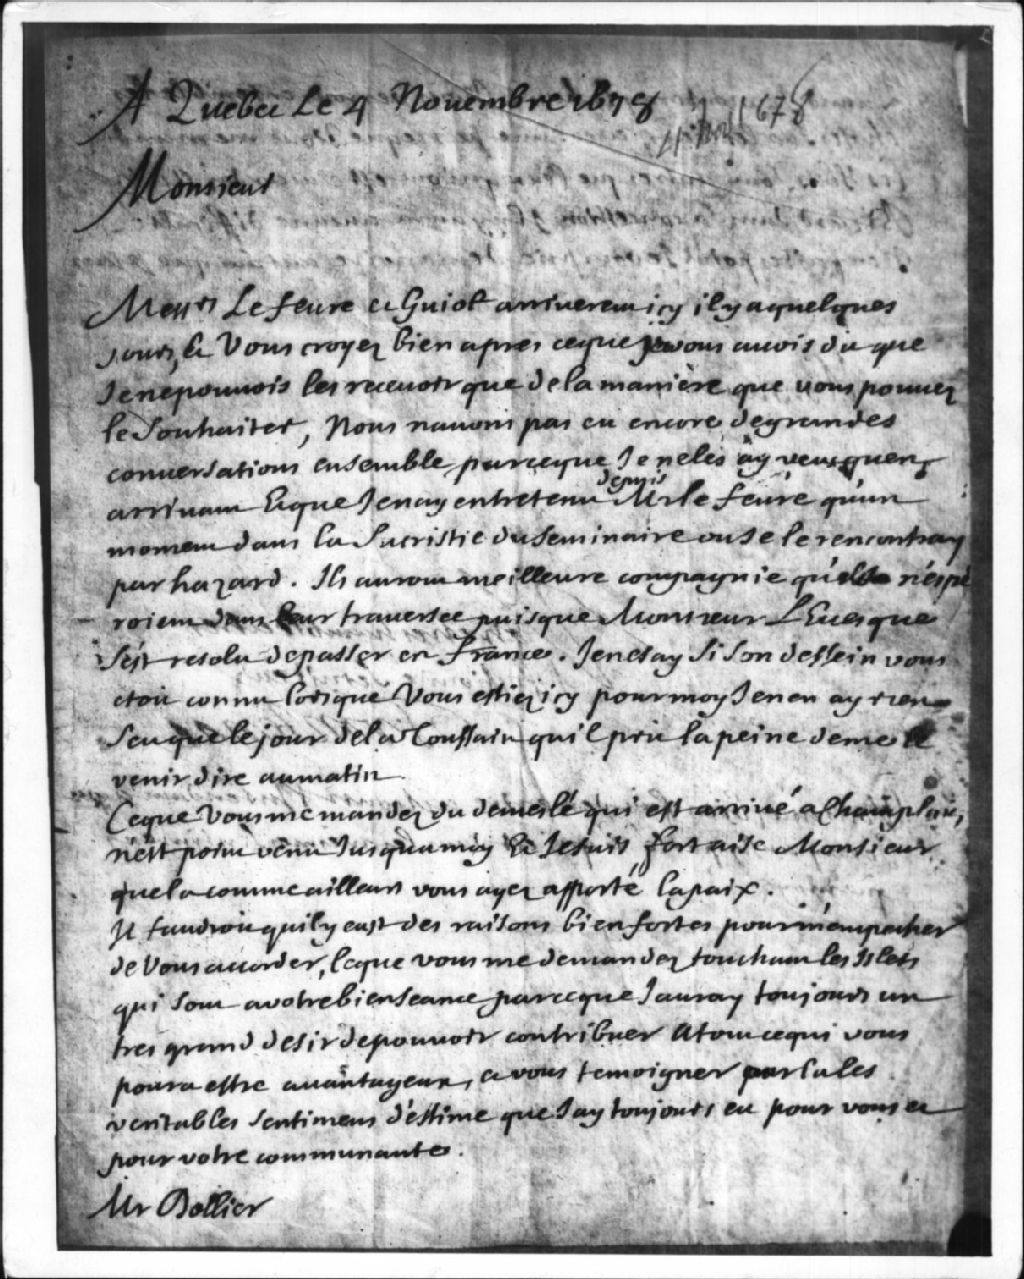 A Quebec Le 4 Novembre 1678
1678
Monsieur
Mess.rs Le feure et Guiot arriverent icy il y a quelques
jours, et Vous croyez bien apres ceque je vous avois dit que
Je ne pouvois les recevoir que de la maniere que vous pouvez
le Souhaiter, Nous navons pas eu encore de grandes
conversations ensemble parceque Je ne les ay veus quen
arrivant Et que Je nay entretenu depuis Mr le feure qu'un
moment dans la Sacristie du Seminaire ou Je le rencontray
par hazard. Ils auront meilleure compagnie qu'ils n'espe
roient dans leur traversee puisque Monsieur L'Evesque
s'est resolu de passer en france. Je ne scay Si Son dessein vous
etoit connu lorsque Vous estiez icy pour moy Je nen ay rien
Sceu que le jour de la Toussaint qu'il prit la peine de me le
venir dire au matin
Ceque Vous me mandez du demeslé qui est arrivé a Champlain,
n'est point venu Jusqu'a moy Et Je suis fort aise Monsieur
que la comme ailleurs vous ayez apporté la paix.
Il faudroit quil y eust des raisons bien fortes pour m'empecher
de Vous accorder, ceque vous me demandez touchant les Islets
qui Sont a votre bienseance parceque J'auray toujours un
tres grand desir de pouvoir contribuer a tout ce qui vous
poura estre avantageux, et vous temoigner par la les
veritables Sentimens d'estime que J'ay toujours eu pour vous et
pour votre communauté.
Mr Dollier